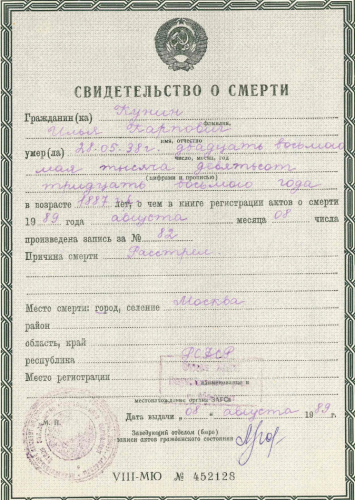 СВИДЕТЕЛЬСТВО О СМЕРТИ
Гражданин(ка) Кунин
фамилия,
Илья Карпович
имя, отчество
умер(ла) 28.05.38г. двадцать восьмого
число, месяц, год
мая тысяча девятьсот
(цифрами и прописью)
тридцать восьмого года
в возрасте 1887 лет, о чем в книге регистрации актов о смерти
1989 года августа месяца 08 числа
произведена запись за № 82
Причина смерти Расстрел
Место смерти: город, селение Москва
район
область, край
республика РСФСР
Место регистрации
наименование и
местонахождение органа ЗАГСа
Дата выдачи „08“ августа 1989 г.
М. П.
Заведующий отделом (бюро)
записи актов гражданского состояния
VIII-МЮ № 452128